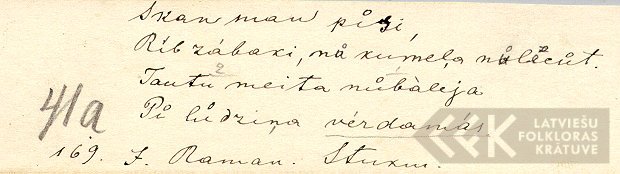 Skan man pīši,
Rīb zābaki, nů kumeļa nůlěcůt.
Tautu meita nůbàlėja
Pi lůdziņa vėrdamás.
41a
169. J. Raman. Stukm.
LATVIEŠU
FOLKLORAS
KRĀTUVE